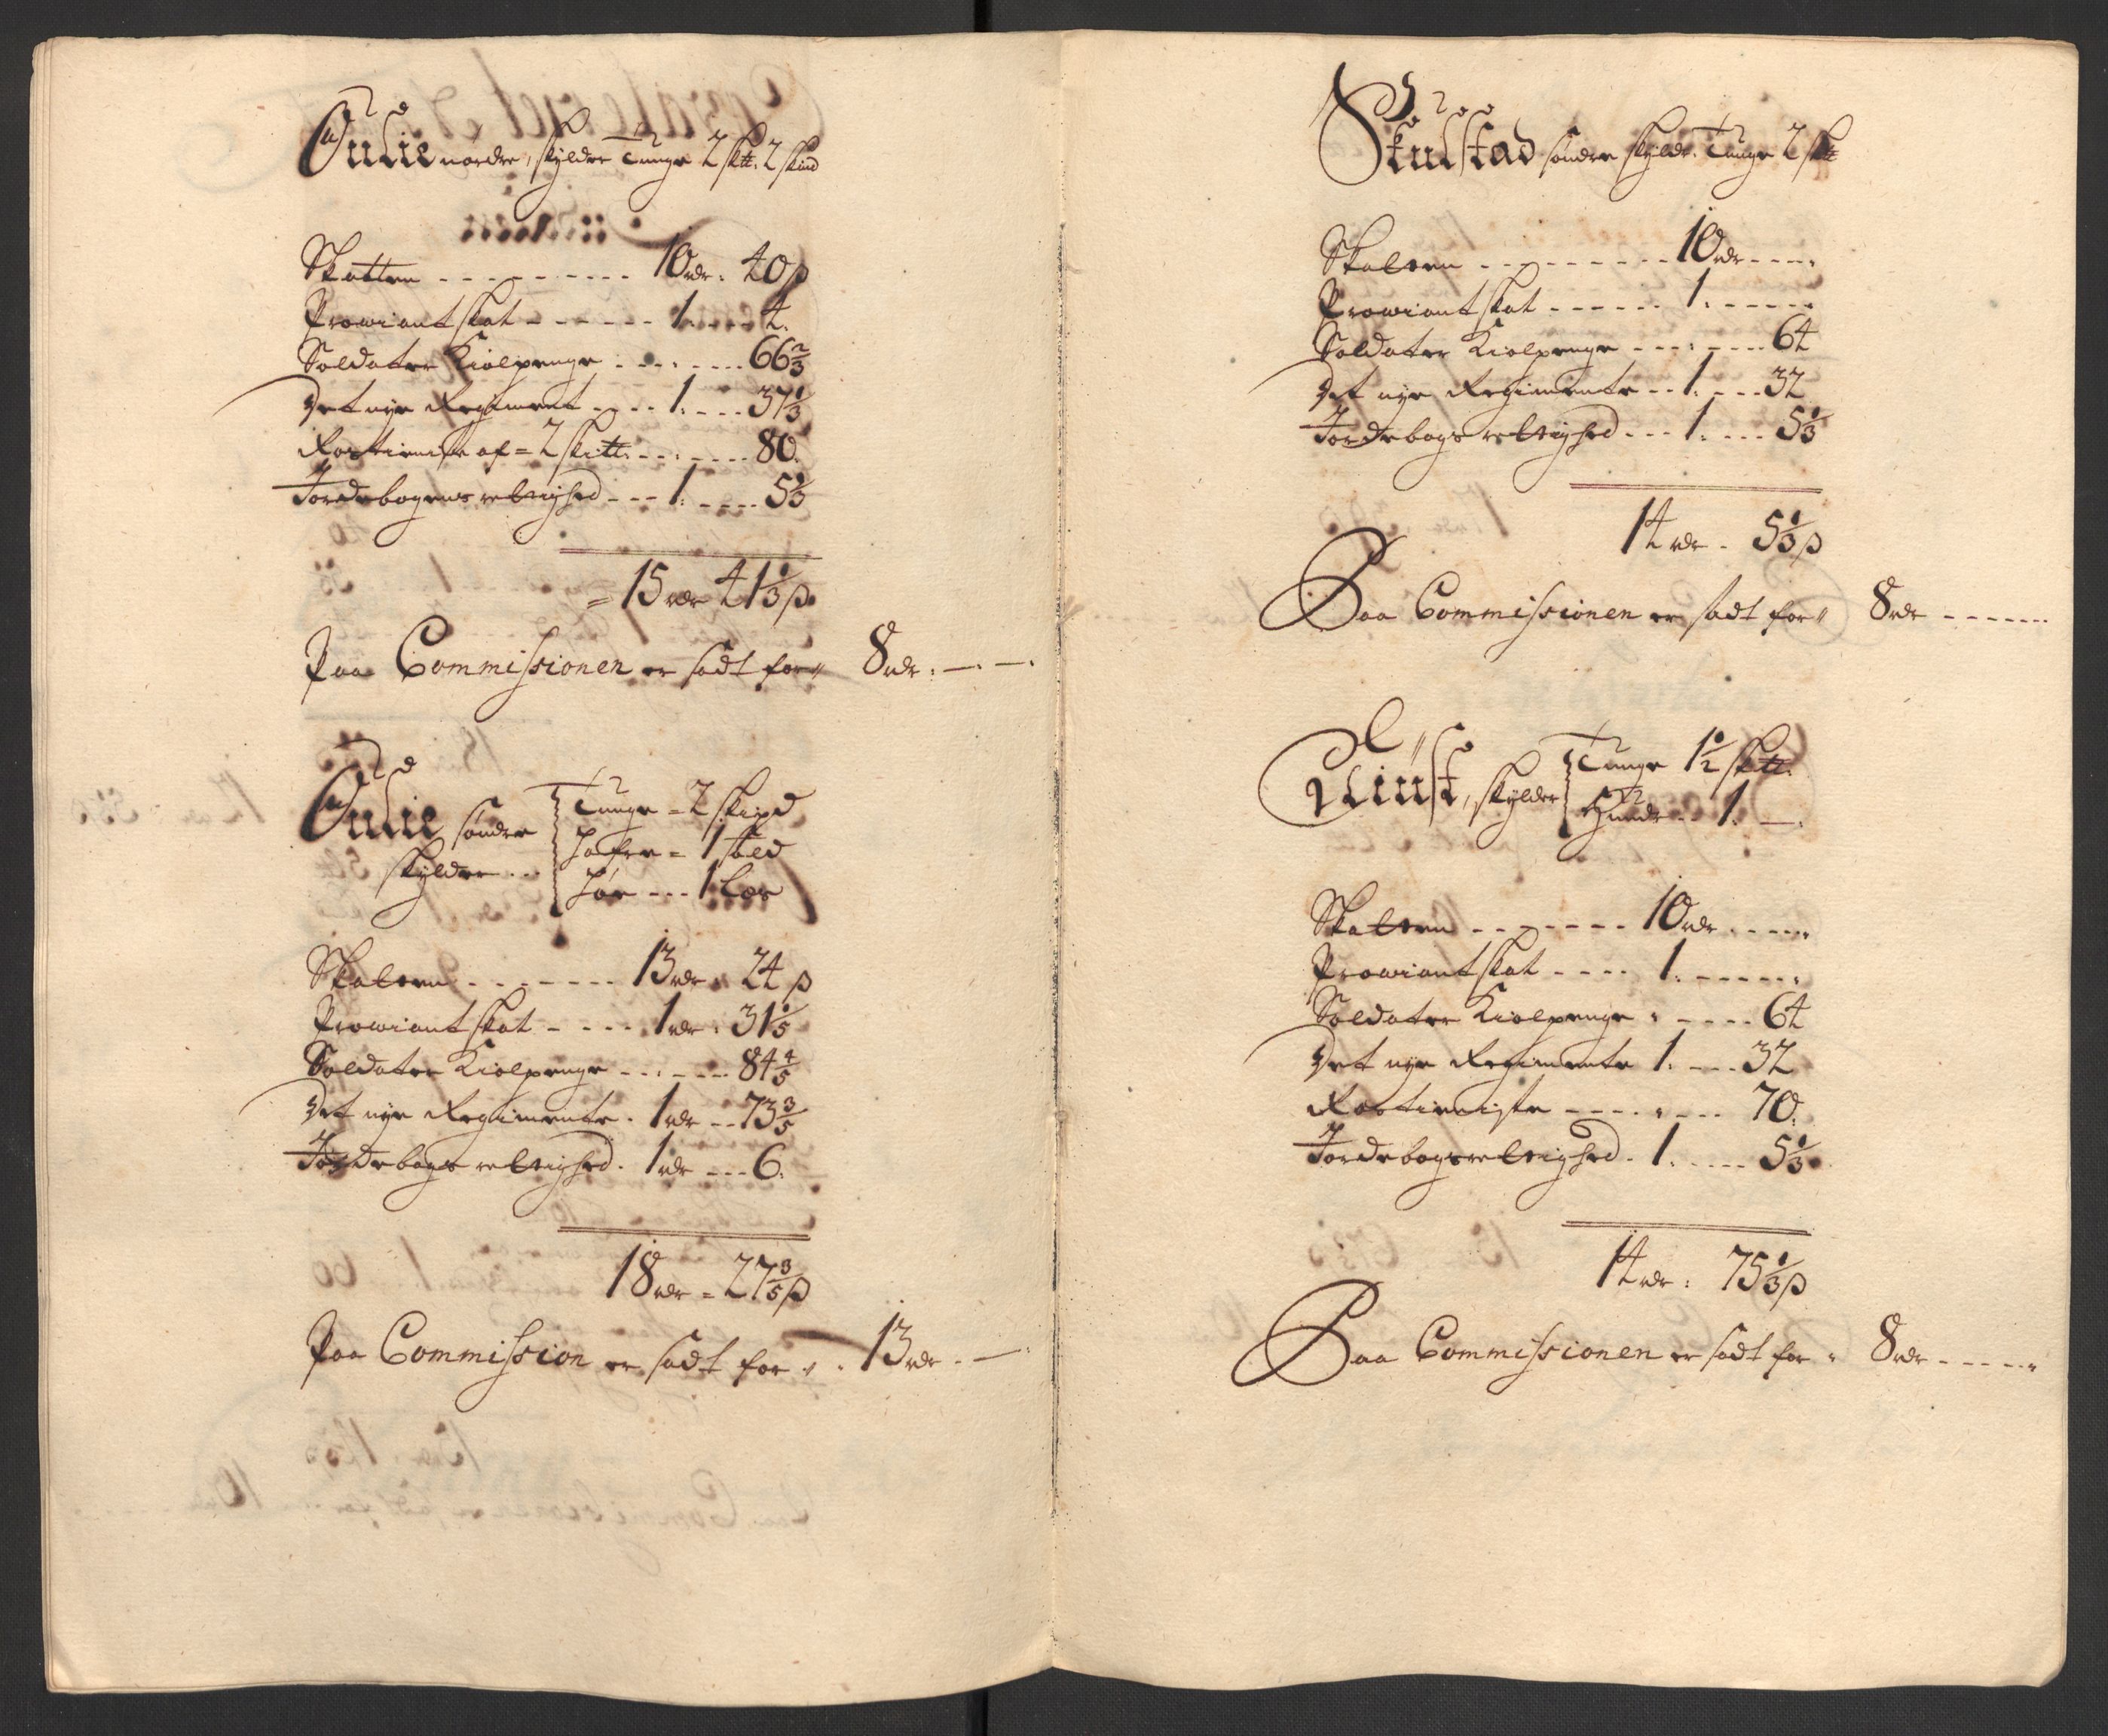 Julie nordre, skylder Tunge 2 sktt: 2 skind
Skatten - - - - - - - - - 10 rdr: 40 ß
Prowiantskat - - - - - - 1. - - - 4.
Soldater Kiolpenge - - - - - - - 66 2/3
Det nye Regiment - - - - 1. - - - 37 1/3
Rostieniste af = 2 sktt: - - - - - - 80.
Jordebogens rettighed - - - 1. - - - - 5 1/3
= 15 rdr 41 1/3 ß.
Paa Commissionen er sadt for 8 rdr. — . —
Julie søndre
skylder - -
Tunge = 2 skipd
Hafre = 1 sold
Høe - - - 1 Læs
Skatten - - - - - - - 13 rdr. 24 ß
Prowiantskat - - - - 1 rdr. 31 1/5
Soldater Kiolpenge - - - - - - 84 4/5
Det nye Regimente. 1 rdr - - 73 3/5
Jordebogs rettighed. 1 rdr - - - 6.
18 rdr = 27 3/5 ß
Paa Commission er sadt for 13 rdr. —
Skulstad søndre skyldr. Tunge 2 sktt
Skatten - - - - - - - - - 10 rdr - - - -
Prowiantskat - - - - - - 1. - - - - -
Soldater Kiolpenge - - - - - - - 64
Det nye Regimente - - 1. - - - 32
Jordebogs rettighed - - - 1. - - - 5 1/3
14 rdr - 5 1/3 ß
Paa Commissionen er sadt for 8 rdr - - - - - -
skylder
Tunge 1 1/2 sktt.
Huude - - 1. —.
Skatten - - - - - - - 10 rdr - - - - -
Prowiantskat - - - - 1. - - - - -
Soldater Kiolpenge - - - - - 64
Det nye Regimente 1. - - - 32
Rostieniste - - - - - - - - 70.
Jordebogsrettighed. 1. - - - - 5 1/3
14 rdr: 75 1/3 ß
Paa Commissionen er sadt for 8 rdr - - - - -